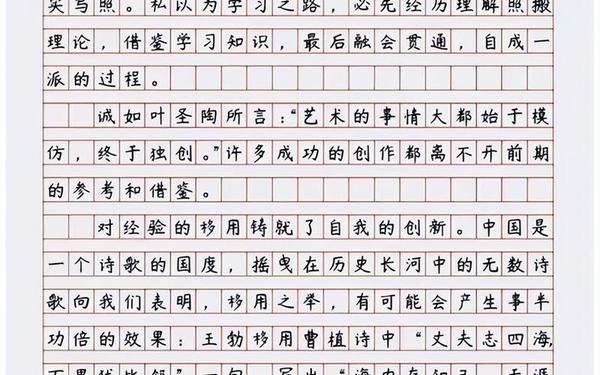 实写照。私以为学习之路，必先经历理解照搬
理论，借鉴学习知识，最后融会贯通，自成一
派的过程。
诚如叶圣陶所言：“艺术的事情大都始于模
仿，终于独创。”许多成功的创作都离不开前期
的参考和借鉴。
对经验的移用铸就了自我的创新。中国是
一个诗歌的国度，摇曳在历史长河中的无数诗
歌向我们表明，移用之举，有可能会产生事半
功倍的效果：王勃移用曹植诗中“丈夫志四海，
万里犹比邻”一句，写出“海内存知己，天涯